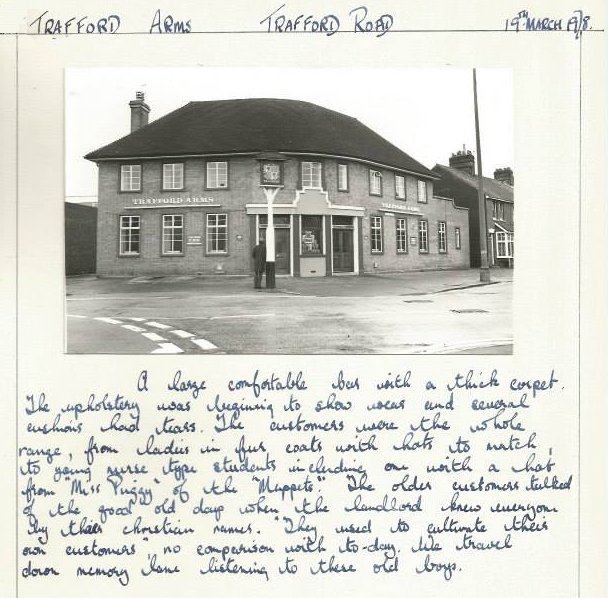 TRAFFORD ARMS TRAFFORD ROAD 19TH MARCH 1978.
TRAFFORD ARMS
TRAFFORD ARMS
A large comfortable bar with a thick carpet.
The upholstery was beginning to show wear and several
cushions had tears. The customers were the whole
range, from ladies in fur coats with hats to match,
to young nurse type students including one with a hat
from "Miss Piggy" of the "Muppets". The older customers talked
of the good old days when the landlord knew everyone
by their christian names. "They used to cultivate their
own customers", no comparison with to-day. We travel
down memory lane listening to these old boys.